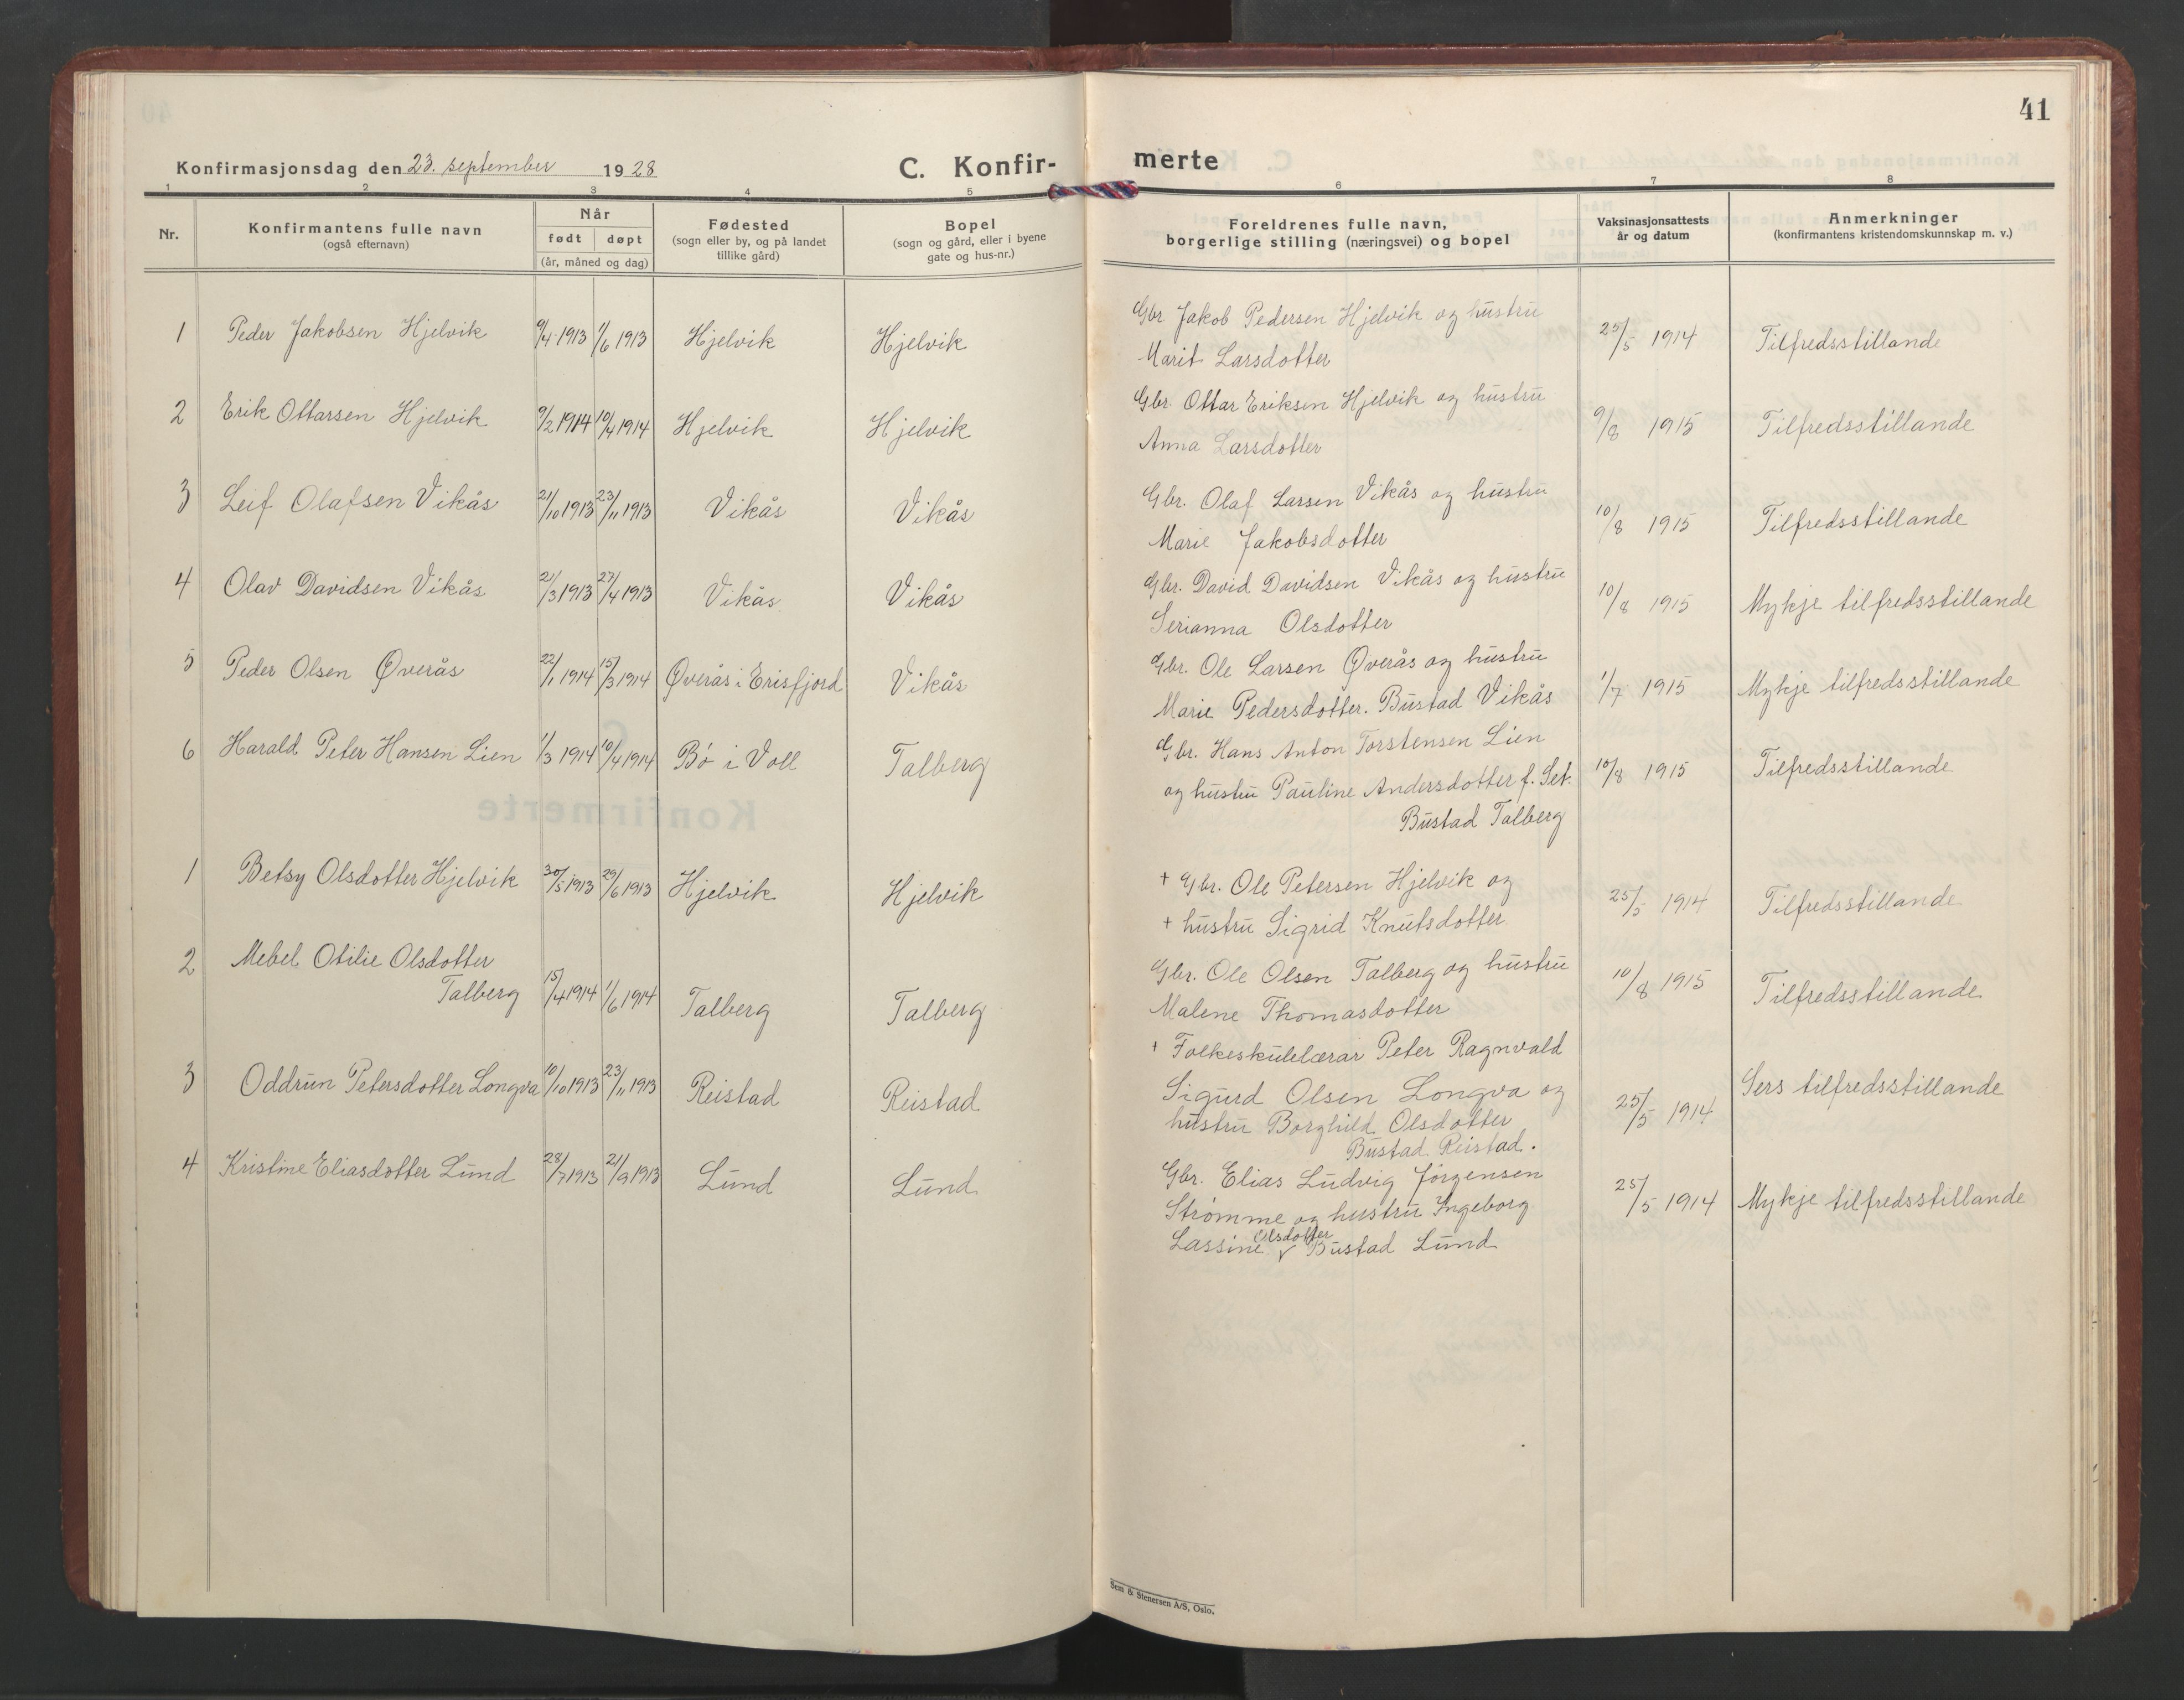 41
Konfirmasjonsdag den 23. september 1928
C. Konfir-
merte
1 2 3 4 5 6 7 8
Nr.
Konfirmantens fulle navn
(også efternavn)
Når
født døpt
(år, måned og dag)
Fødested
(sogn eller by, og på landet
tillike gård)
Bopel
(sogn og gård, eller i byene
gate og hus-nr.)
Foreldrenes fulle navn,
borgerlige stilling (næringsvei) og bopel
Vaksinasjonsattests
år og datum
Anmerkninger
(konfirmantens kristendomskunnskap m. v.)
1 Peder Jakobsen Hjelvik 9/4 1913 1/6 1913 Hjelvik Hjelvik
Gbr. Jakob Pedersen Hjelvik og hustru
Marit Larsdotter
25/5 1914 Tilfredsstillande
2 Erik Ottarsen Hjelvik 9/2 1914 10/4 1914 Hjelvik Hjelvik
Gbr. Ottar Eriksen Hjelvik og hustru
Anna Larsdotter
9/8 1915 Tilfredsstillande
3 Leif Olafsen Vikås 21/10 1913 23/11 1913 Vikås Vikås
Gbr. Olaf Larsen Vikås og hustru
Marie Jakobsdotter
10/8 1915 Tilfredsstillande
4 Olav Davidsen Vikås 21/3 1913 27/4 1913 Vikås Vikås
Gbr. David Davidsen Vikås og hustru
Serianna Olsdotter
10/8 1915 Mykje tilfredsstillande
5 Peder Olsen Øverås 22/1 1914 15/3 1914 Øverås i Erisfjord Vikås
Gbr. Ole Larsen Øverås og hustru
Marie Pedersdotter. Bustad Vikås
1/7 1915 Mykje tilfredsstillande
6 Harald Peter Hansen Lien 1/3 1914 10/4 1914 Bø i Voll Talberg
Gbr. Hans Anton Torstensen Lien
og hustru Pauline Andersdotter f. Set.
Bustad Talberg
10/8 1915 Tilfredsstillande
1 Betsy Olsdotter Hjelvik 30/5 1913 29/6 1913 Hjelvik Hjelvik
+ Gbr. Ole Petersen Hjelvik og
+ hustru Sigrid Knutsdotter
25/5 1914 Tilfredsstillande
2 Mebel Otilie Olsdotter
Talberg 15/4 1914 1/6 1914 Talberg Talberg
Gbr. Ole Olsen Talberg og hustru
Malene Thomasdotter
10/8 1915 Tilfredsstillande
3 Oddrun Petersdotter Longva 10/10 1913 23/11 1913 Reistad Reistad
+ Folkeskulelærar Peter Ragnvald
Sigurd Olsen Longva og
hustru Borghild Olsdotter
Bustad Reistad.
25/5 1914 Sers tilfredsstillande
4 Kristine Eliasdotter Lund 28/7 1913 21/9 1913 Lund Lund
Gbr. Elias Ludvig Jörgensen
Strømme og hustru Ingeborg
Lassine Olsdotter Bustad Lund
25/5 1914 Mykje tilfredsstillande
Sem & Stenersen A/S, Oslo.